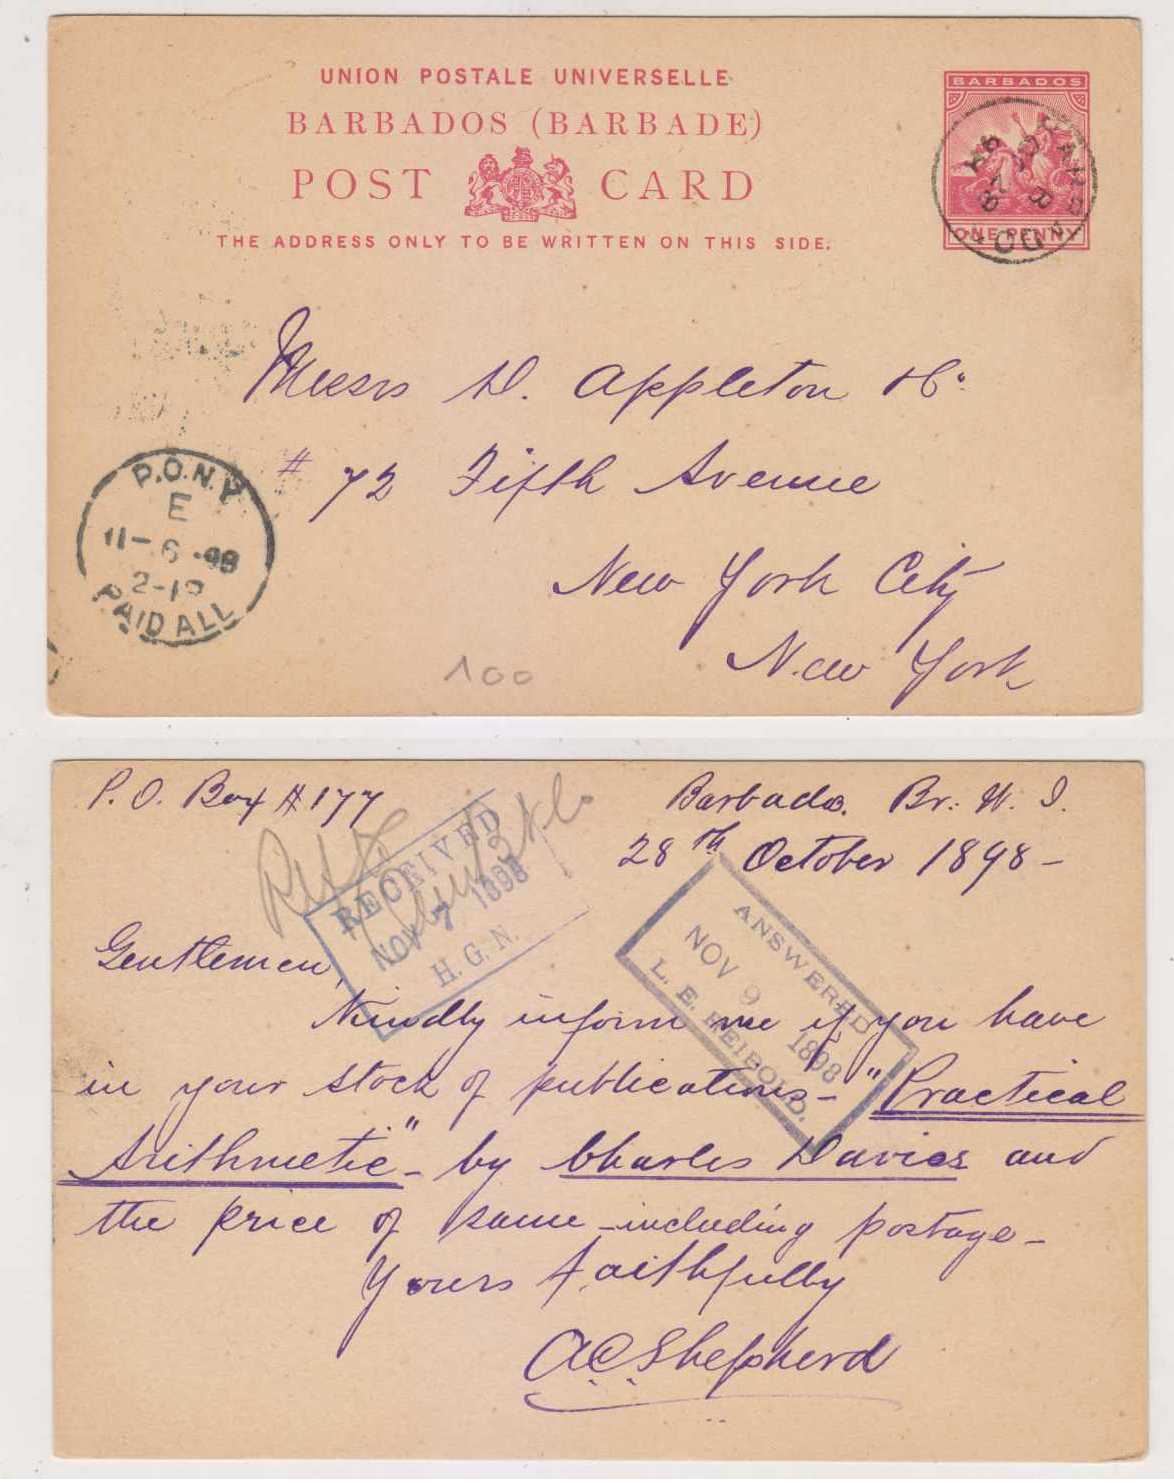 UNION POSTALE UNIVERSELLE
BARBADOS (BARBADE)
POST CARD
THE ADDRESS ONLY TO BE WRITTEN ON THIS SIDE.
BARBADOS
ONE PENNY
Messrs D. Appleton & Co.
# 72 Fifth Avenue
New York City
New York
P.O.N.Y.
E
11-6-98
2-1
PAID ALL
100
P.O. Box #177
Barbados. Br: W. I.
28th October 1898-
RECEIVED
NOV 7 1898
H.G.N.
ANSWERED
NOV 9 1898
L. E. REIBOLD.
Gentlemen,
Kindly inform me if you have
in your stock of publications- "Practical
Arithmetic"- by Charles Davies and
the price of same-including postage-
Yours faithfully
A.C. Shepherd